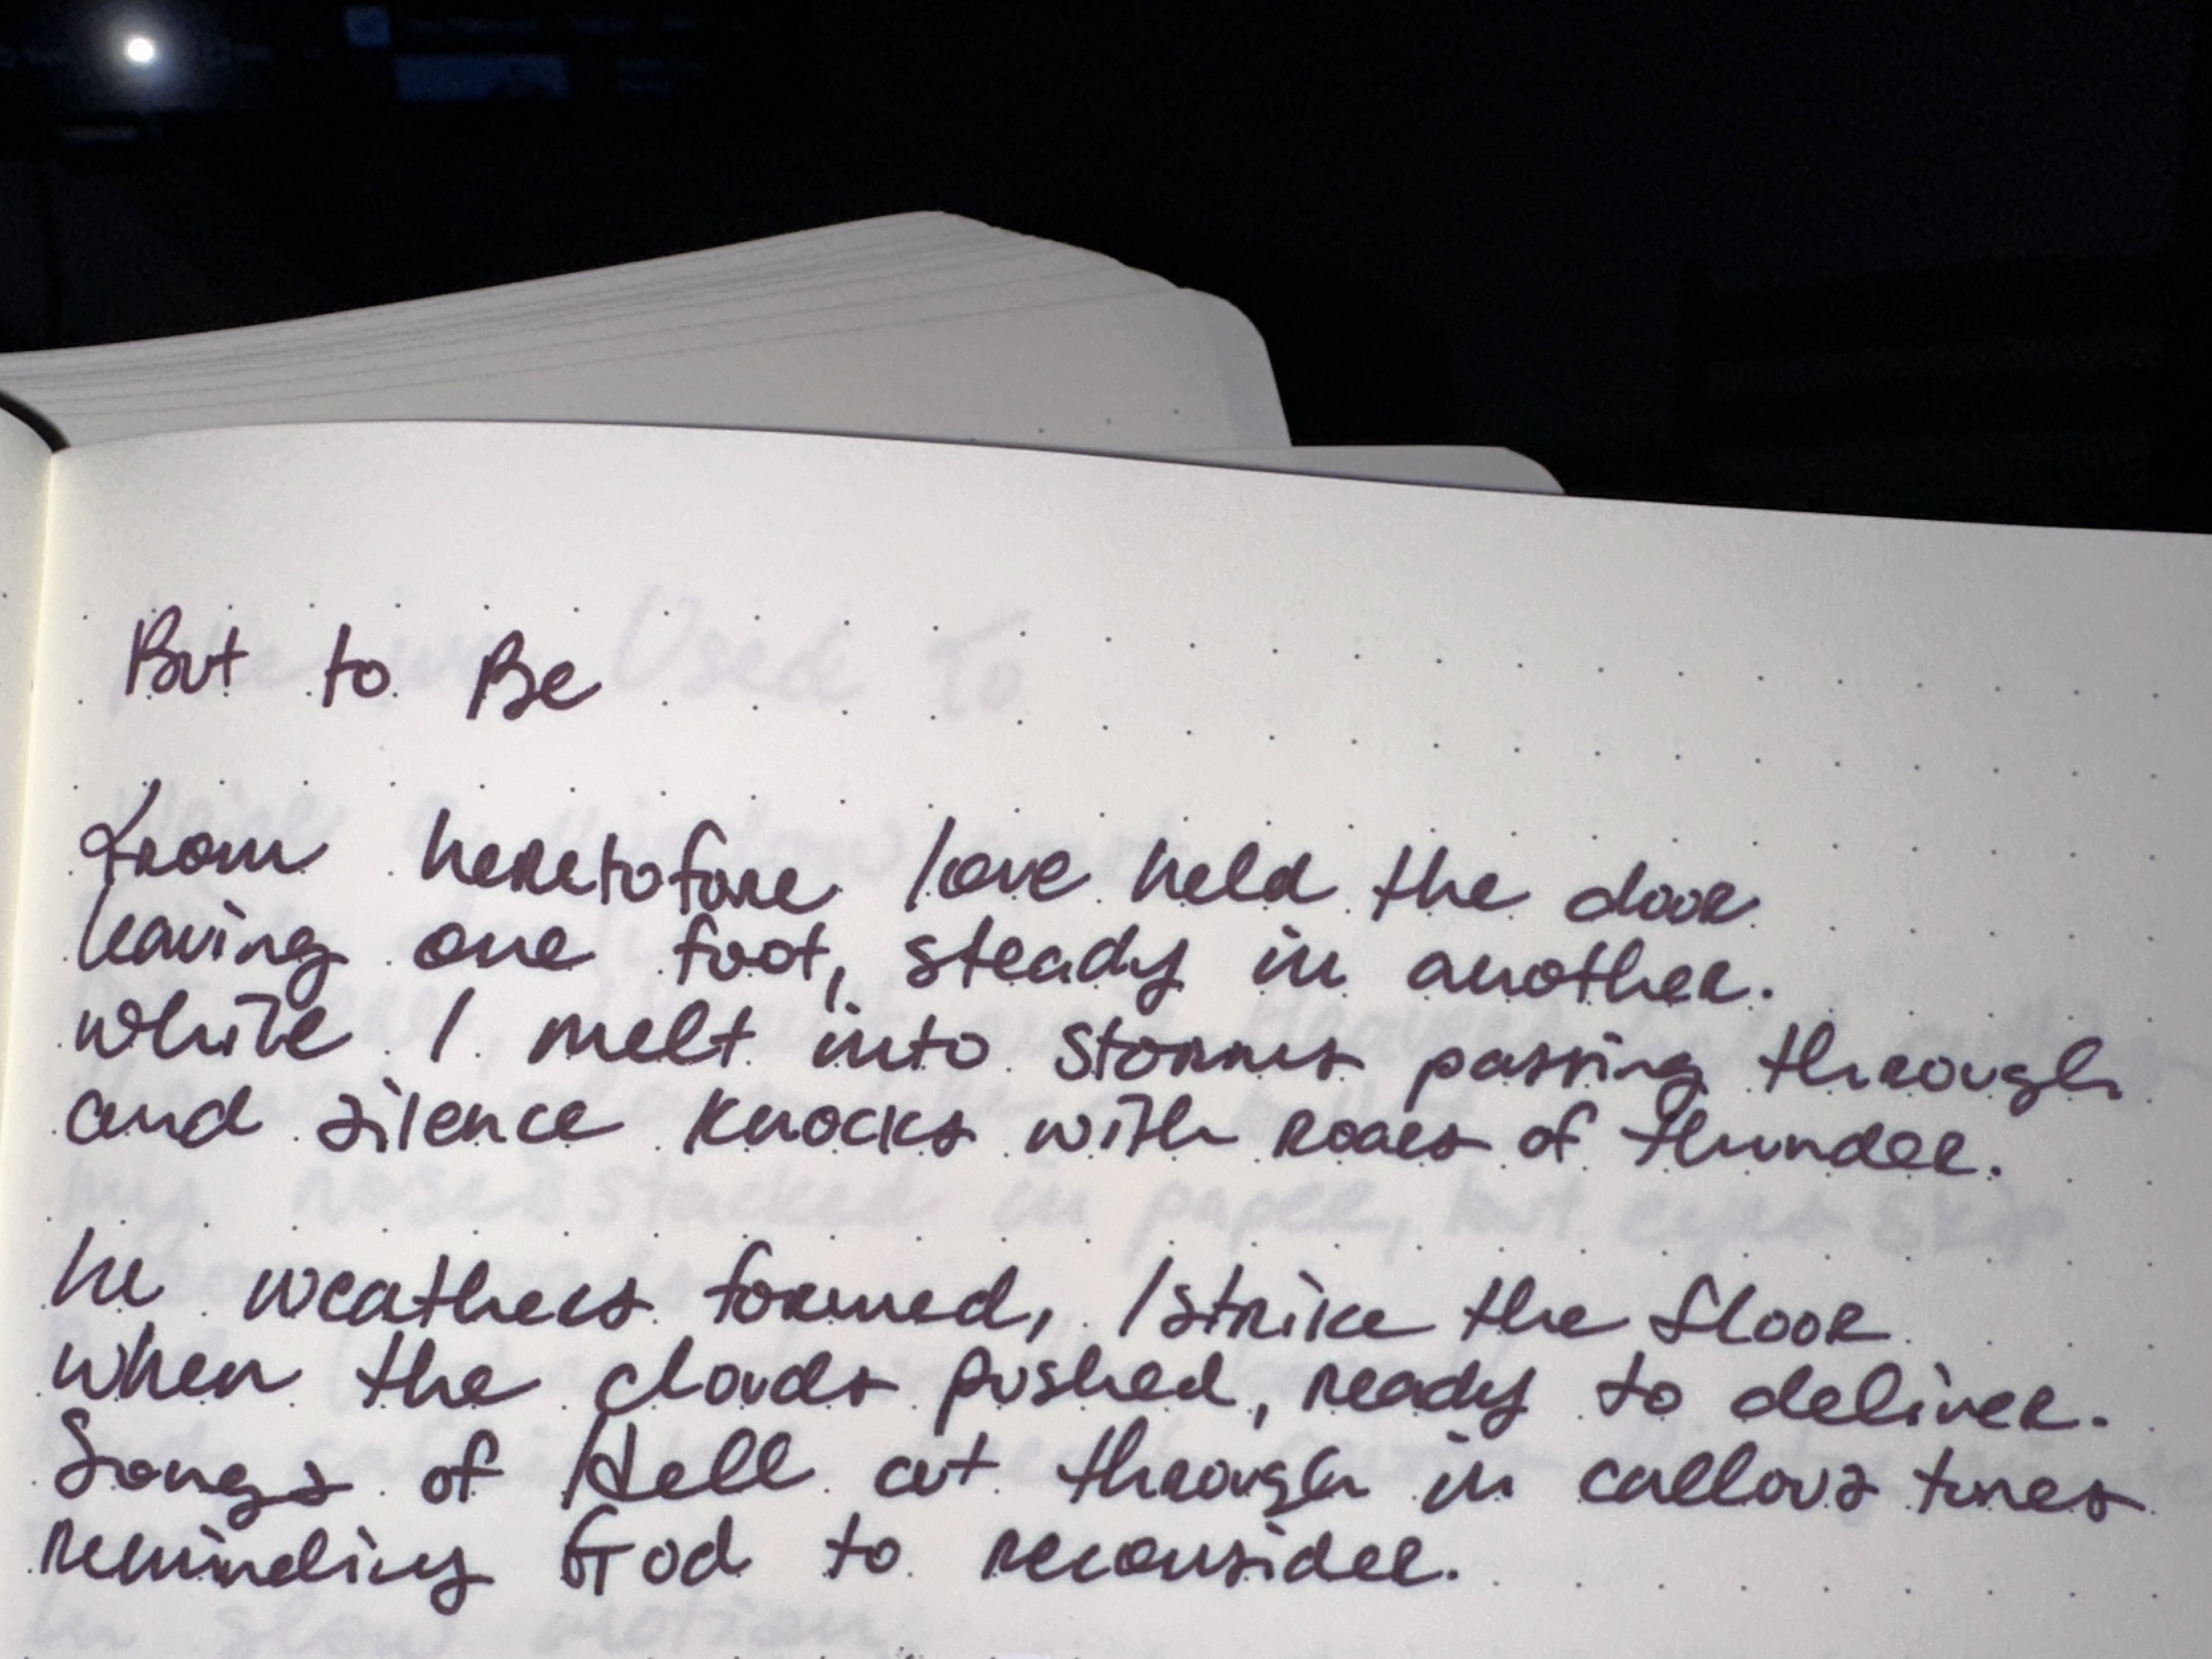 But to Be
from heretofore love held the door
leaving one foot, steady in another.
while I melt into storms passing through
and silence knocks with roars of thunder.
In weathers formed, I strike the floor
when the clouds pushed, ready to deliver.
Songs of Hell cut through in callous tunes
reminding God to reconsider.